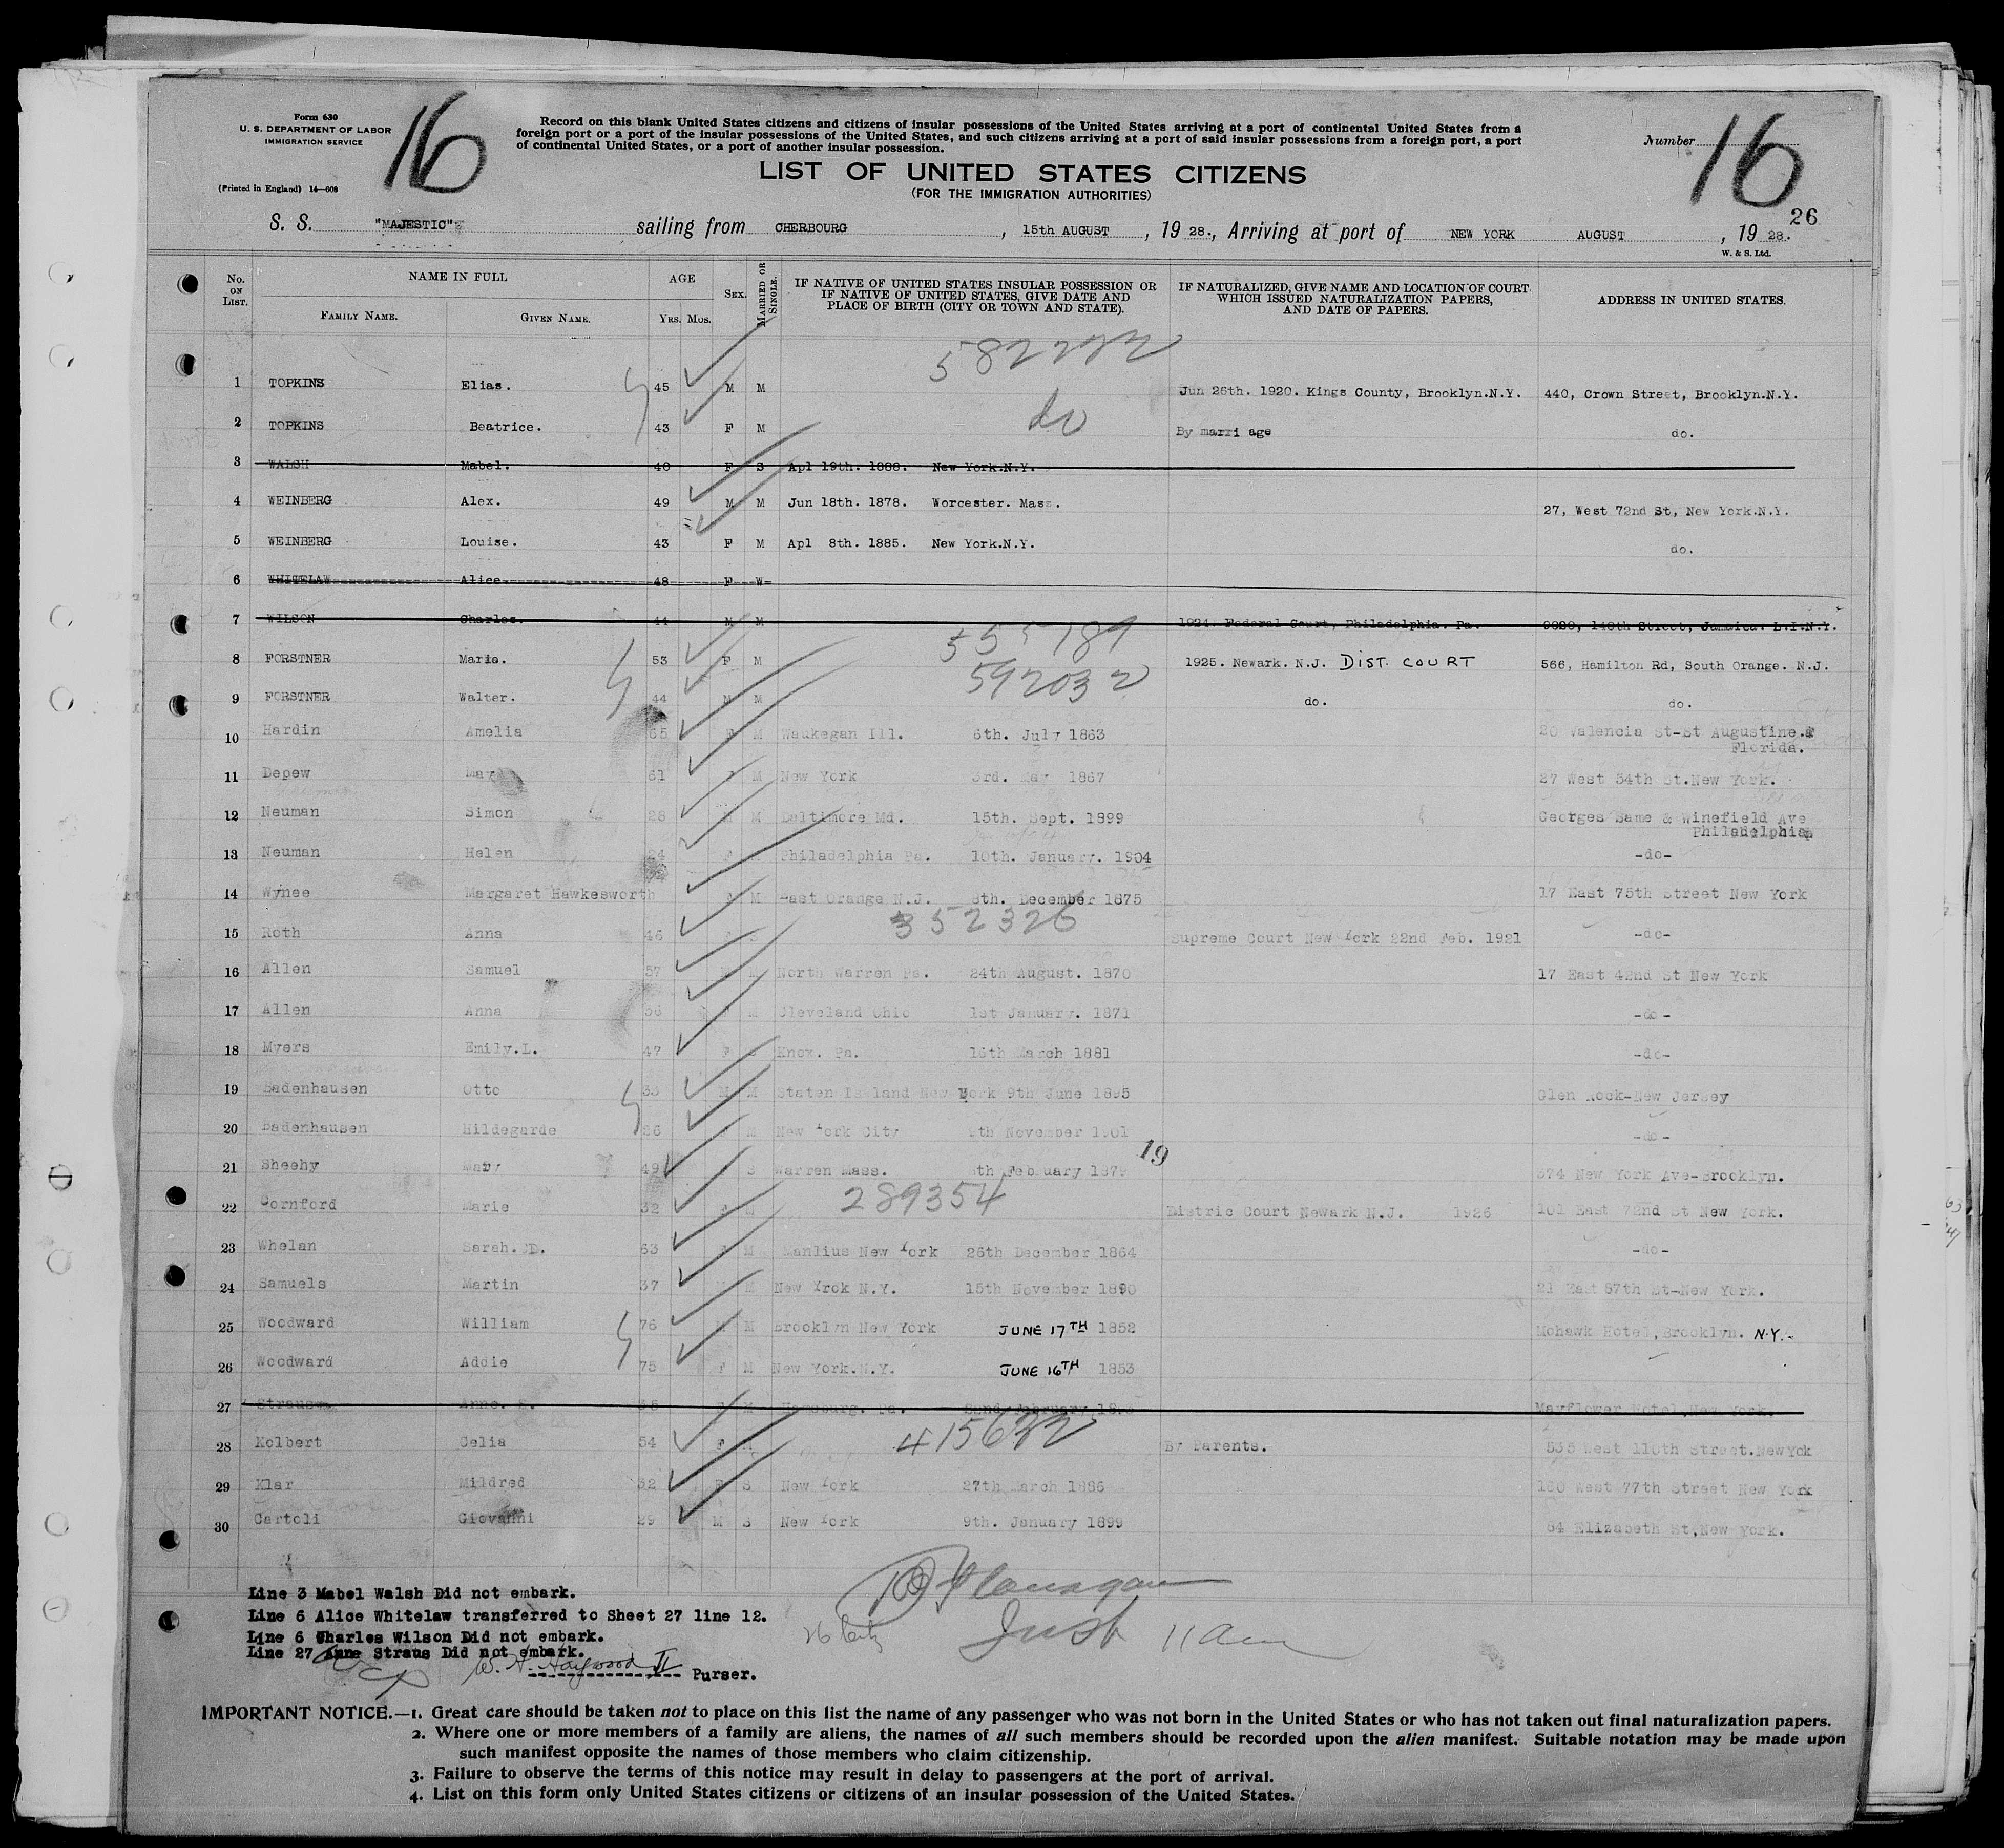 Form 630
U. S. DEPARTMENT OF LABOR
IMMIGRATION SERVICE
(Printed in England) 14—608
16
Record on this blank United States citizens and citizens of insular possessions of the United States arriving at a port of continental United States from a
foreign port or a port of the insular possessions of the United States, and such citizens arriving at a port of said insular possessions from a foreign port, a port
of continental United States, or a port of another insular possession.
LIST OF UNITED STATES CITIZENS
(FOR THE IMMIGRATION AUTHORITIES)
Number 16
26
S. S. "MAJESTIC" sailing from CHERBOURG , 15th AUGUST , 19 28., Arriving at port of NEW YORK AUGUST , 19 28.
W. & S. Ltd.
No. ON LIST. NAME IN FULL FAMILY NAME. GIVEN NAME. AGE YRS. MOS. SEX. MARRIED OR SINGLE. IF NATIVE OF UNITED STATES INSULAR POSSESSION OR IF NATIVE OF UNITED STATES, GIVE DATE AND PLACE OF BIRTH (CITY OR TOWN AND STATE). IF NATURALIZED, GIVE NAME AND LOCATION OF COURT WHICH ISSUED NATURALIZATION PAPERS, AND DATE OF PAPERS. ADDRESS IN UNITED STATES.
582222
1 TOPKINS Elias. 45 M M Jun 26th. 1920. Kings County, Brooklyn.N.Y. 440, Crown Street, Brooklyn.N.Y.
2 TOPKINS Beatrice. 43 F M do By marri age do.
3 WALSH Mabel. 40 F S Apl 19th. 1888. New York.N.Y.
4 WEINBERG Alex. 49 M M Jun 18th. 1878. Worcester. Mass. 27, West 72nd St, New York.N.Y.
5 WEINBERG Louise. 43 F M Apl 8th. 1885. New York.N.Y. do.
6 WHITELAW Alice. 48 F W
7 WILSON Charles. 44 M M 1924. Federal Court, Philadelphia. Pa. 148th Street, Jamaica. L.I.N.Y.
8 FORSTNER Marie. 53 F M 555189 1925. Newark. N.J. DIST. COURT 566, Hamilton Rd, South Orange. N.J.
9 FORSTNER Walter. 44 M M 592032 do. do.
10 Hardin Amelia 65 F M Waukegan Ill. 6th. July 1863 20 Valencia St-St Augustine.
Florida.
11 Depew May 61 F M New York 3rd. May 1867 27 West 54th St.New York.
12 Neuman Simon 28 M M Baltimore Md. 15th. Sept. 1899 Georges Same & Winefield Ave
Philadelphia
13 Neuman Helen 24 F Philadelphia Pa. 10th. January. 1904 -do-
14 Wynee Margaret Hawkesworth F M East Orange N.J. 8th. December 1875 17 East 75th Street New York
15 Roth Anna 46 352326 Supreme Court New York 22nd Feb. 1921 -do-
16 Allen Samuel 57 M North Warren Pa. 24th August. 1870 17 East 42nd St New York
17 Allen Anna 56 M Cleveland Ohio 1st January. 1871 -do-
18 Myers Emily.L. 47 F Knox. Pa. 16th March 1881 -do-
19 Badenhausen Otto 33 M M Staten Island New York 9th June 1895 Glen Rock-New Jersey
20 Badenhausen Hildegarde 26 M New York City 9th November 1901 -do-
21 Sheehy Mary 49 S Warren Mass. 8th February 1879 19 574 New York Ave-Brooklyn.
22 Cornford Marie 32 F M 289354 Distric Court Newark N.J. 1926 101 East 72nd St New York.
23 Whelan Sarah. D. 63 F M Manlius New York 26th December 1864 -do-
24 Samuels Martin 37 M M New Yrok N.Y. 15th November 1890 21 East 87th St-New York.
25 Woodward William 76 M M Brooklyn New York JUNE 17TH 1852 Mohawk Hotel, Brooklyn. N.Y.-
26 Woodward Addie 75 F M New York.N.Y. JUNE 16TH 1853
27 Straus Anne. F M Hamburg. Pa. 22nd February Mayflower Hotel,New York.
28 Kolbert Celia 54 F 415632 By Parents. 535 West 110th Street.NewYok
29 Klar Mildred 52 F S New York 27th March 1886 160 West 77th Street New York
30 Cartoli Giovanni 29 M S New York 9th. January 1899 64 Elizabeth St,New York.
Line 3 Mabel Walsh Did not embark.
Line 6 Alice Whitelaw transferred to Sheet 27 line 12.
Line 6 Charles Wilson Did not embark.
Line 27 Anne Straus Did not embark.
W. H. Haywood II Purser.
Flanagan
26
Just 11 am
IMPORTANT NOTICE.—1. Great care should be taken not to place on this list the name of any passenger who was not born in the United States or who has not taken out final naturalization papers.
2. Where one or more members of a family are aliens, the names of all such members should be recorded upon the alien manifest. Suitable notation may be made upon
such manifest opposite the names of those members who claim citizenship.
3. Failure to observe the terms of this notice may result in delay to passengers at the port of arrival.
4. List on this form only United States citizens or citizens of an insular possession of the United States.